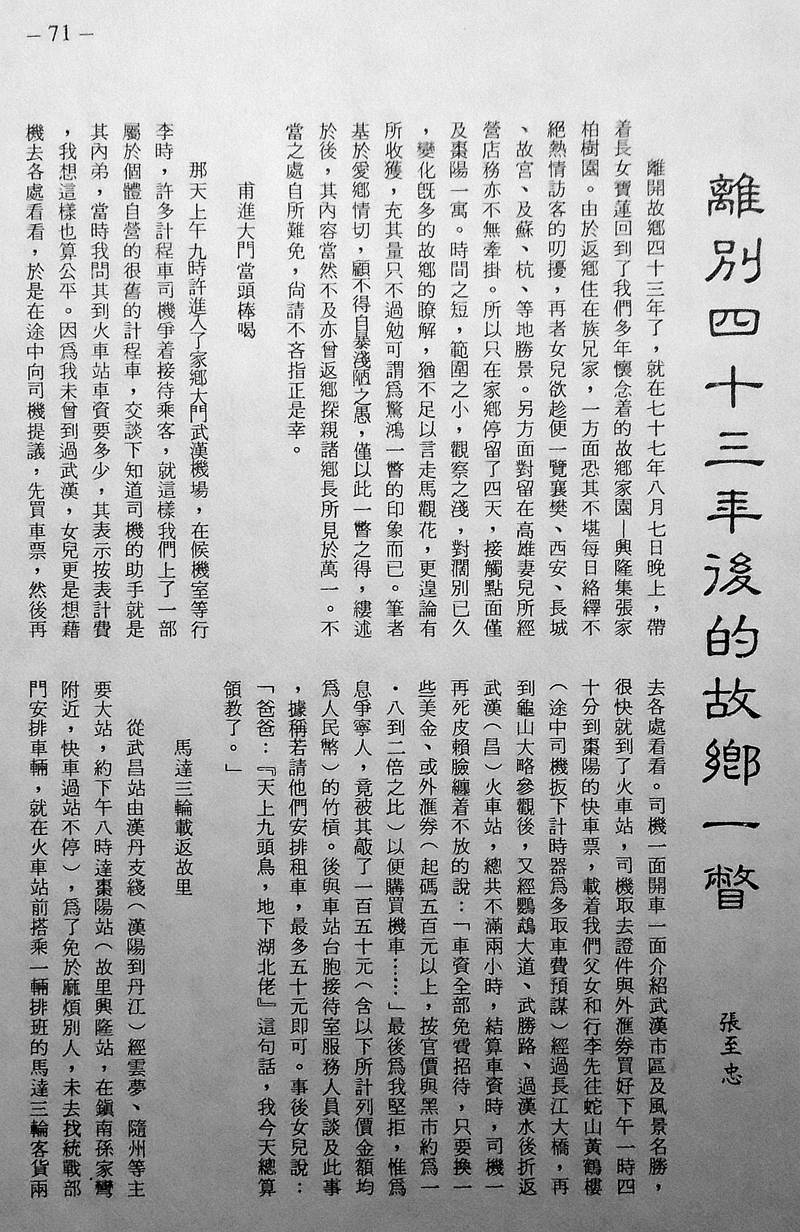 －71－
離別四十三年後的故鄉一瞥
張至忠
離開故鄉四十三年了，就在七十七年八月七日晚上，帶
着長女寶蓮回到了我們多年懷念着的故鄉家園—興隆集張家
柏樹園。由於返鄉住在族兄家，一方面恐其不堪每日絡繹不
絕熱情訪客的叨擾，再者女兒欲趁便一覽襄樊、西安、長城
、故宮、及蘇、杭、等地勝景。另方面對留在高雄妻兒所經
營店務亦不無牽掛。所以只在家鄉停留了四天，接觸點面僅
及棗陽一寓。時間之短，範圍之小，觀察之淺，對濶別已久
，變化旣多的故鄉的瞭解，猶不足以言走馬觀花，更遑論有
所收獲，充其量只不過勉可謂爲驚鴻一瞥的印象而已。筆者
基於愛鄉情切，顧不得自暴淺陋之愚，僅以此一瞥之得，縷述
於後，其內容當然不及亦曾返鄉探親諸鄉長所見於萬一。不
當之處自所難免，尙請不吝指正是幸。
甫進大門當頭棒喝
那天上午九時許進入了家鄉大門武漢機場，在候機室等行
李時，許多計程車司機爭着接待乘客，就這樣我們上了一部
屬於個體自營的很舊的計程車，交談下知道司機的助手就是
其內弟，當時我問其到火車站車資要多少，其表示按表計費
，我想這樣也算公平。因爲我未曾到過武漢，女兒更是想藉
機去各處看看，於是在途中向司機提議，先買車票，然後再
去各處看看。司機一面開車一面介紹武漢市區及風景名勝，
很快就到了火車站，司機取去證件與外滙券買好下午一時四
十分到棗陽的快車票，載着我們父女和行李先往蛇山黃鶴樓
（途中司機扳下計時器爲多取車費預謀）經過長江大橋，再
到龜山大略參觀後，又經鸚鵡大道、武勝路、過漢水後折返
武漢（昌）火車站，總共不滿兩小時，結算車資時，司機一
再死皮賴臉纏着不放的說：「車資全部免費招待，只要換一
些美金、或外滙券（起碼五百元以上，按官價與黑市約爲一
・八到二倍之比）以便購買機車……」最後爲我堅拒，惟爲
息爭寧人，竟被其敲了一百五十元（含以下所計列價金額均
爲人民幣）的竹槓。後與車站台胞接待室服務人員談及此事
，據稱若請他們安排租車，最多五十元即可。事後女兒說：
「爸爸：『天上九頭鳥，地下湖北佬』這句話，我今天總算
領教了。」
馬達三輪載返故里
從武昌站由漢丹支綫（漢陽到丹江）經雲夢、隨州等主
要大站，約下午八時達棗陽站（故里興隆站，在鎭南孫家灣
附近，快車過站不停），爲了免於麻煩別人，未去找統戰部
門安排車輛，就在火車站前搭乘一輛排班的馬達三輪客貨兩